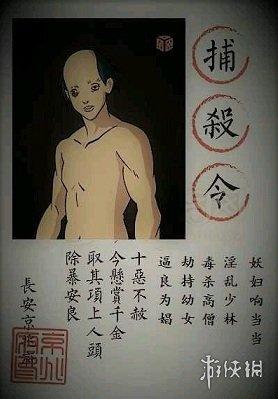 捕殺令
妖妇响当当
淫乱少林
毒杀高僧
劫持幼女
逼良为娼
十惡不赦
今懸賞千金
取其項上人頭
除暴安良
長安京兆府
游侠网